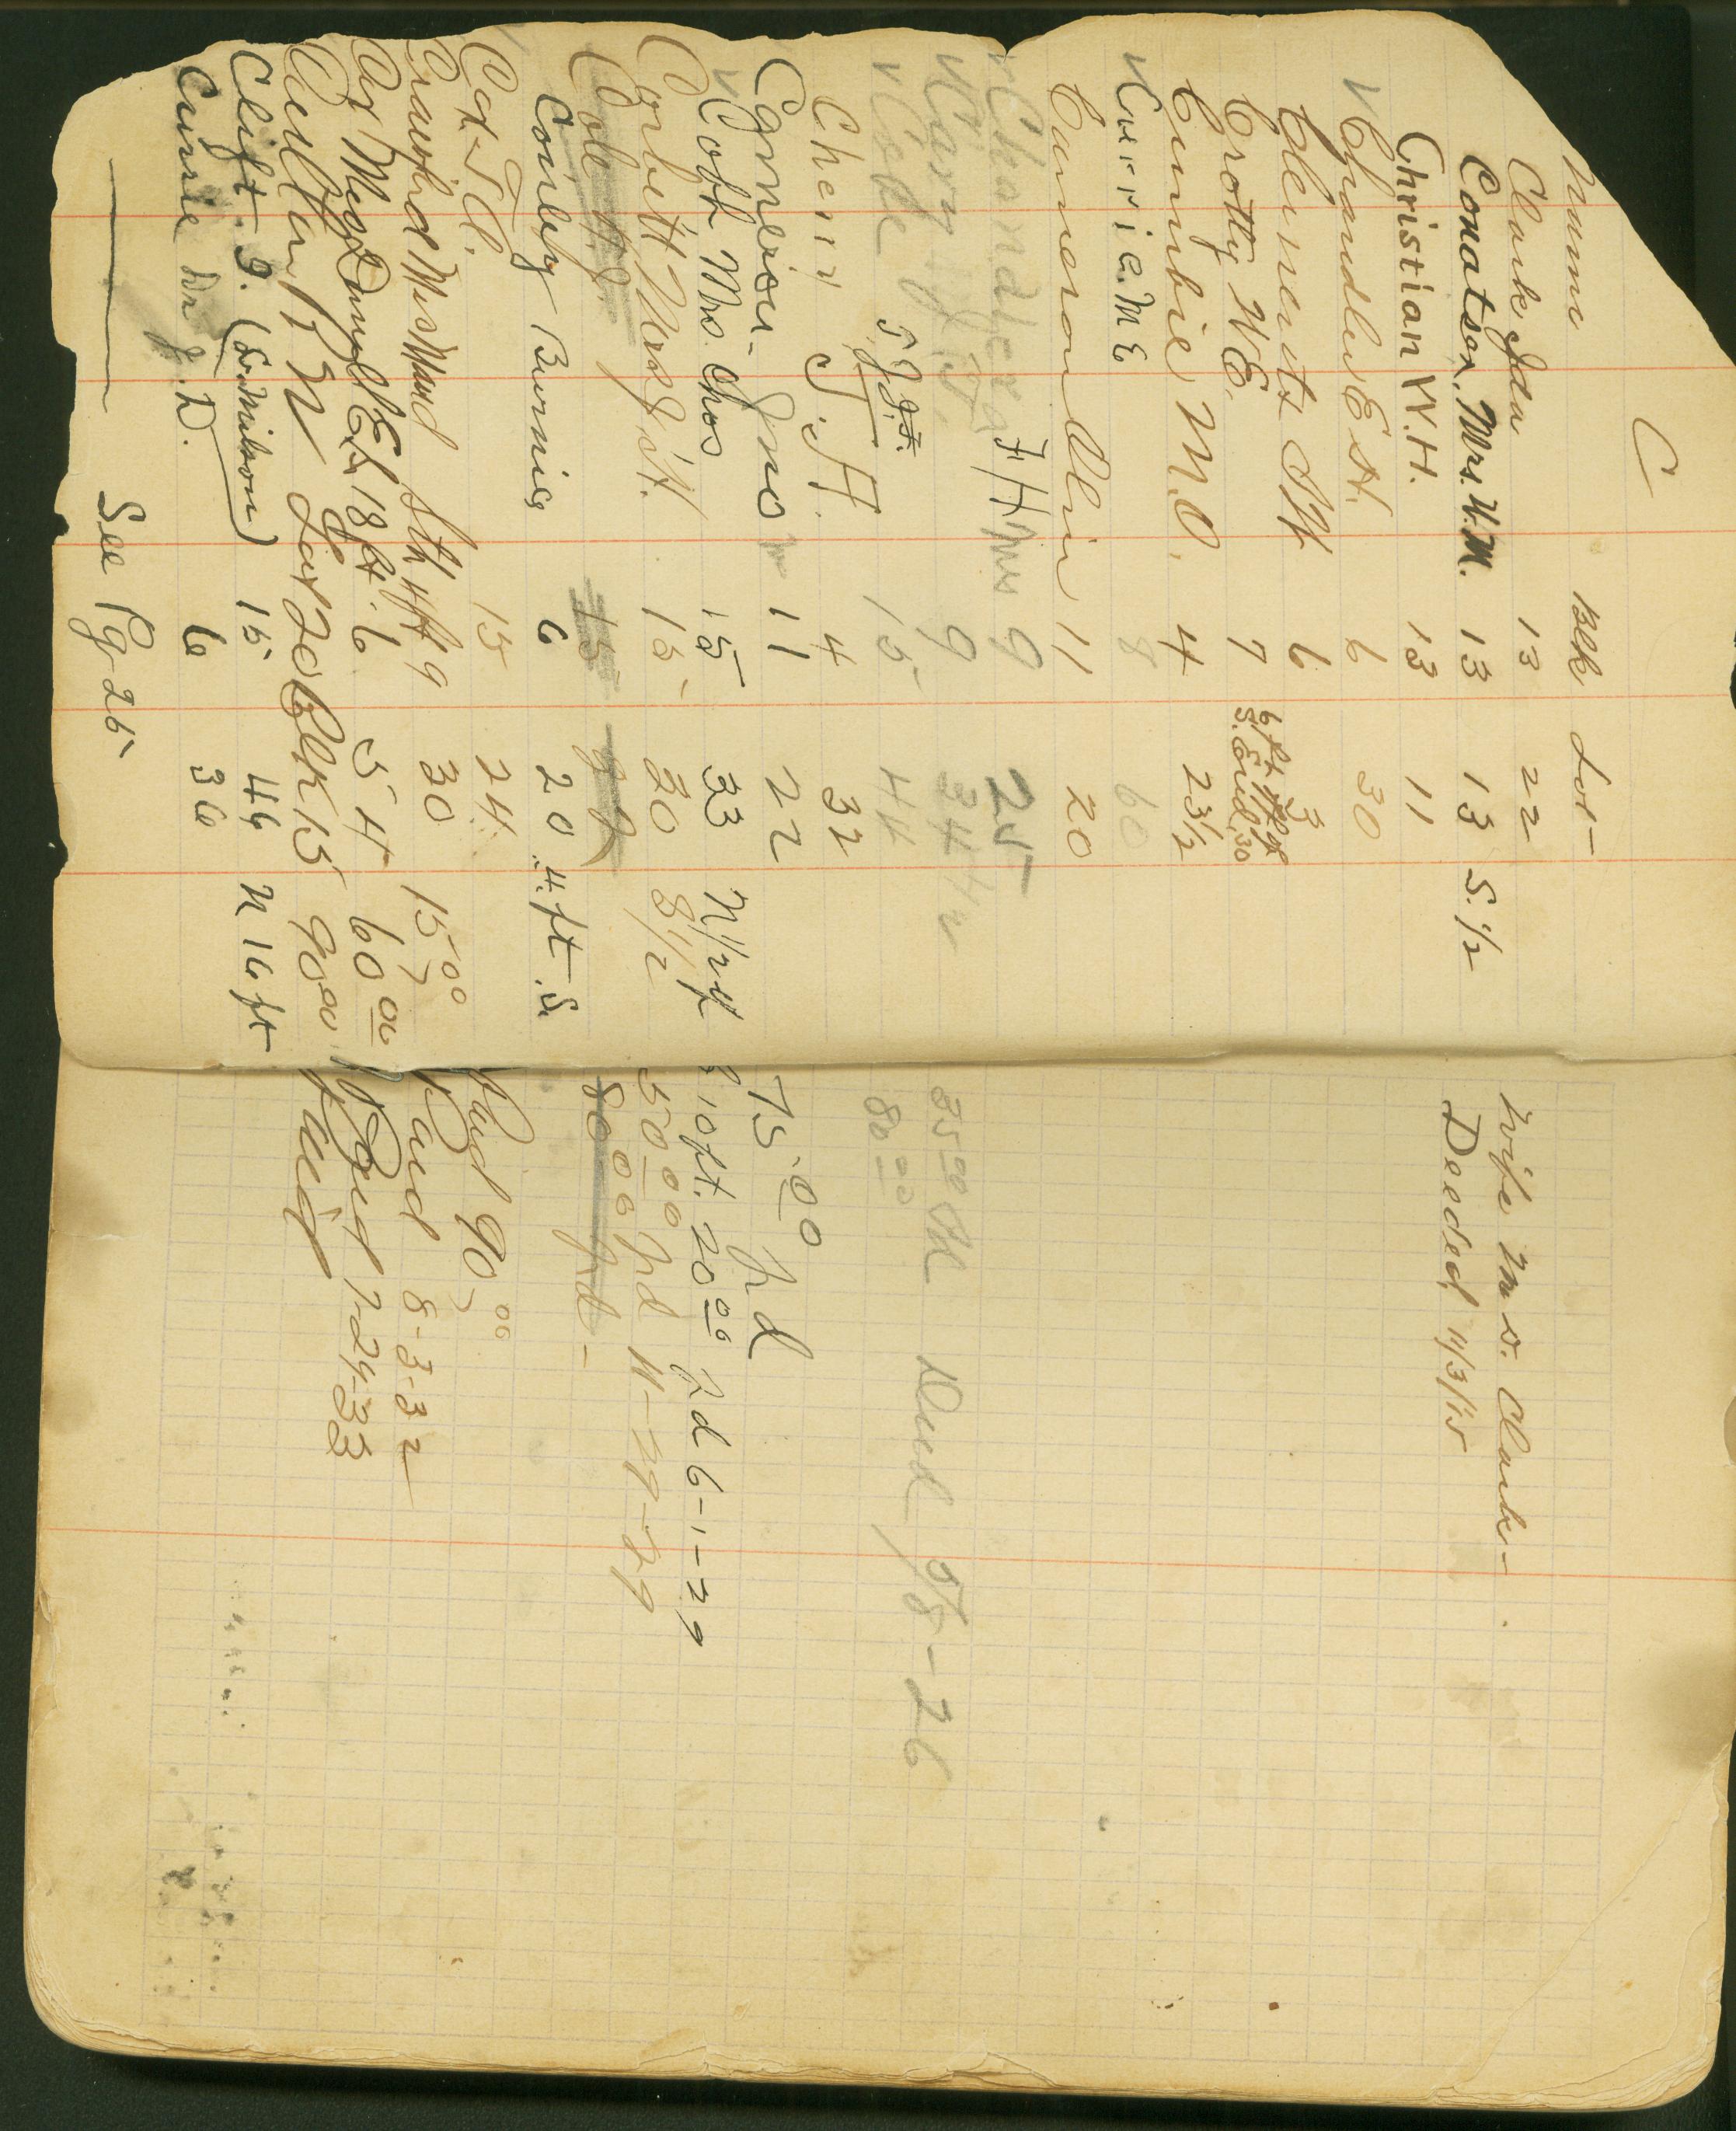 C
Name Blk Lot
Clark Ida 13 22 wife Mrs. Clark
Conatser, Mrs. W.M. 13 13 S. 1/2 Deeded 11/3/15
Christian W.H. 13 11
v Chandler E H. 6 30
Clements 6 3
Crotty W E. 7 6 ft S. End 30
Crumbie M.O. 4 23 1/2
v Currie M E 8 60
Cameron Alvin 11 20
v Chandler F H 9 25
v Cary J. 9 34 35 00 Pd Deed 5/8-26
v Cole J. J. 15 44 80 00
Cheir J. H. 4 32
Cameron Jno 11 22 75.00 pd
v Cobb Mrs. Chas 15 33 N 1/2 of 10 ft. 20 00 Pd 6-1-29
Corbett Mrs J. H. 15 30 S 1/2 50 00 pd 11-29-29
Cole 15 80 00 pd -
Conley Burnice 6 20 4. ft S.
Cox T C. 15 24 Paid 90,00
Crawford Mrs Maud Sth 4ft 9 30 15,00 Paid 8-3-32
Cox Mrs Daniel E S 18 ft. 6 54 60 00 Paid 7-24-33
Lot 20 Blk 15 90 00 Paid
Clift. J. (S. Milsom) 15 46 N 16 ft
Currie Dr J. D. 6 36
See Pg 25